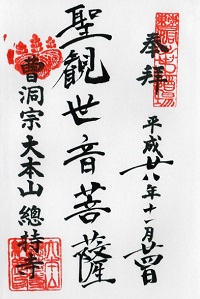 奉拝
平成廿八年十一月廿日
聖観世音菩薩
曹洞宗大本山總持寺